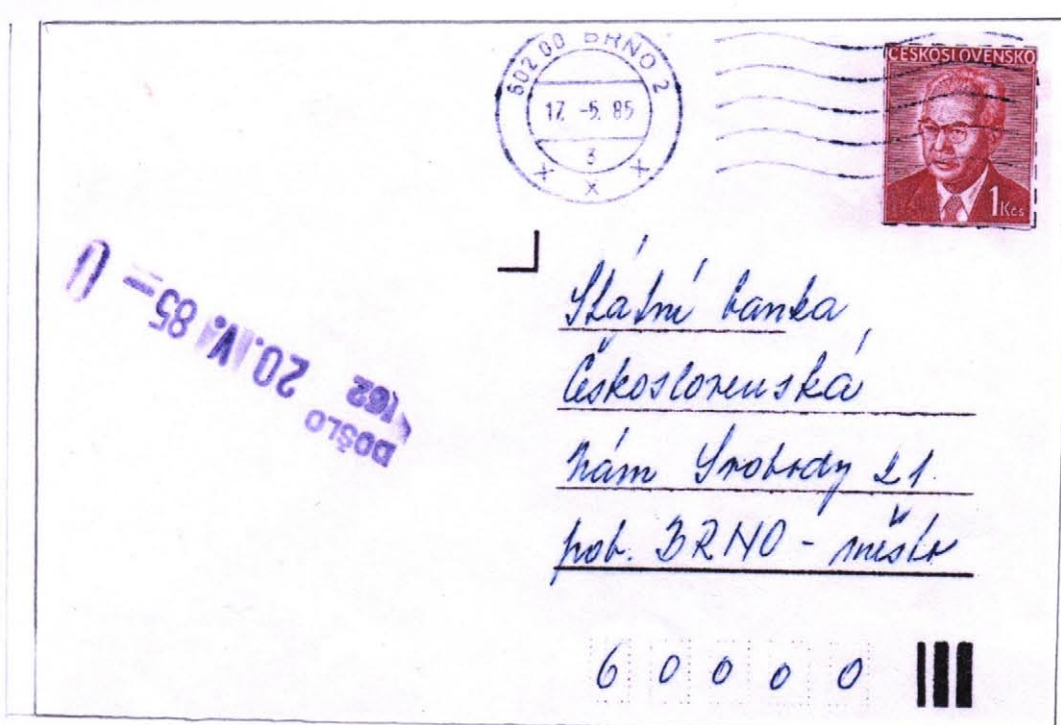 602 00 BRNO 2
17. -5. 85
3
ČESKOSLOVENSKO
1 Kčs
DOŠLO
162 20. IV. 85 — U
Státní banka
Československá
Nám Svobody 21.
pob. BRNO - město
60000